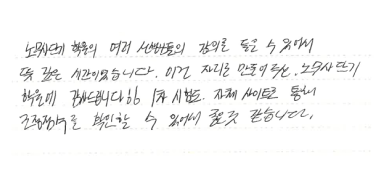 노무사단기 학원의 여러 선생님들의 강의를 들을 수 있어서
뜻 깊은 시간이었습니다. 이런 자리를 만들어주신, 노무사 단기
학원에 감사드립니다!! 1차 시험도 자체 사이트로 통해
조정점수를 확인할 수 있어서 좋은것 같습니다.